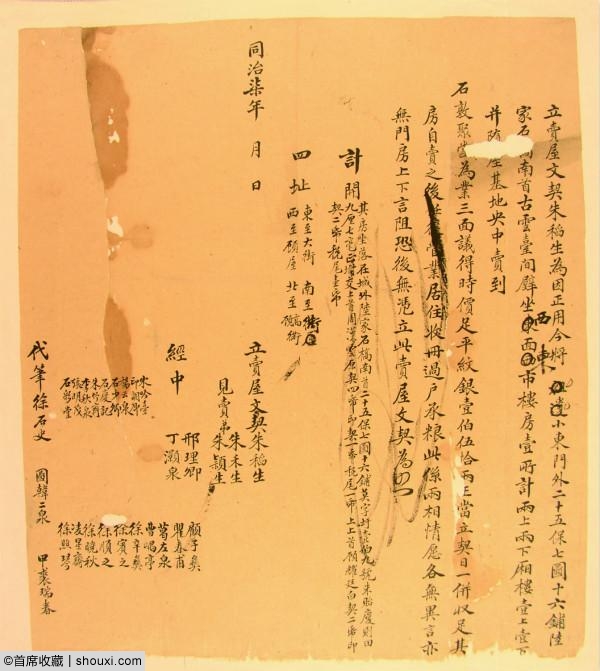 立賣屋文契朱稻生為因正用今將小東門外二十五保七圖十六鋪陸
家石橋南首古雲臺間壁坐西東市樓房壹所計兩上兩下廂樓壹上壹下
并随屋基地央中賣到
石敦聚堂為業三面議得時價足平紋銀壹伯伍拾兩正當立契日一併收足其
房自賣之後營業居住收冊過戶承粮此係兩相情愿各無異言亦
無門房上下言阻恐後無憑立此賣屋文契為
計開
其房坐落在城外陸家石橋南首二十五保七圖十六鋪九號朱貽慶則田
九厘七毫
四址
東至大街 南至街
西至顧屋 北至街
同治柒年 月 日
立賣屋文契朱稻生
見賣弟
朱禾生
朱穎生
經中
邢理卿
丁灝泉
顧子美
瞿春甫
葛左泉
曹鳴亭
徐辛美
徐賓之
徐順之
徐曉秋
凌星齋
徐照琴
朱吟壹
石慶記
張明茂
代筆 徐石史
圖 韓二泉
甲 裘瑞春
@首席收藏 | shouxi.com